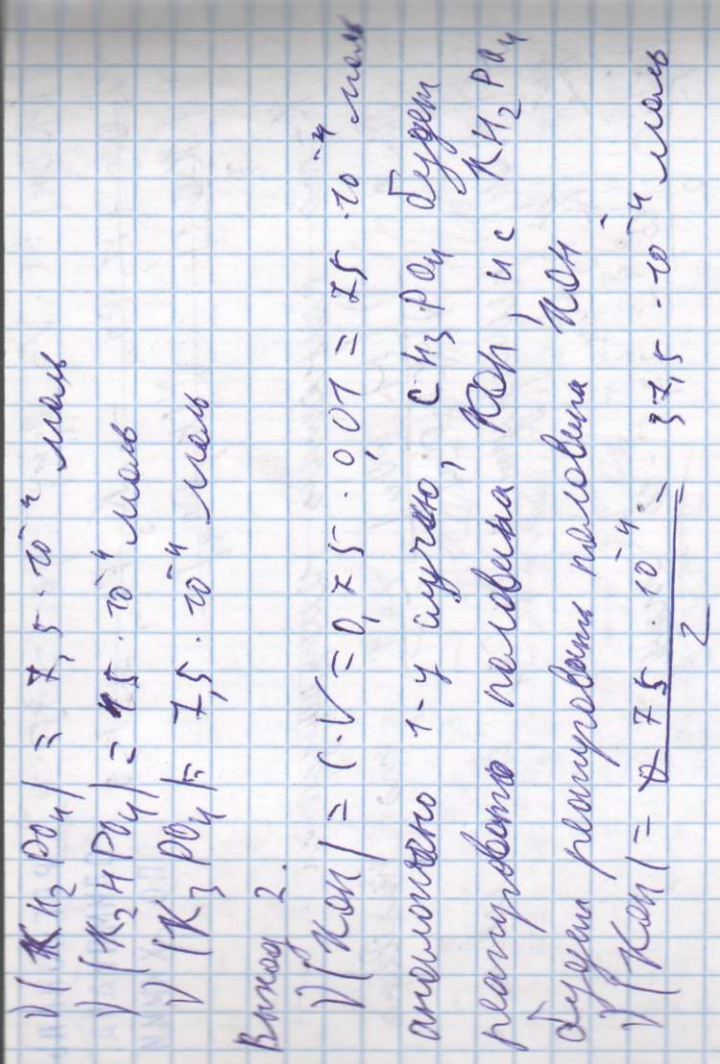 ν(KH₂PO₄) = 7,5 · 10⁻⁴ моль
ν(K₂HPO₄) = 15 · 10⁻⁴ моль
ν(K₃PO₄) = 7,5 · 10⁻⁴ моль
Выход 2.
ν(KOH) = C·V = 0,75 · 0,01 = 75 · 10⁻⁴ моль
аналогично 1-у случаю, с H₃PO₄ будет
реагировать половина KOH, и с KH₂PO₄
будет реагировать половина KOH
ν(KOH) = 75 · 10⁻⁴ / 2 = 37,5 · 10⁻⁴ моль